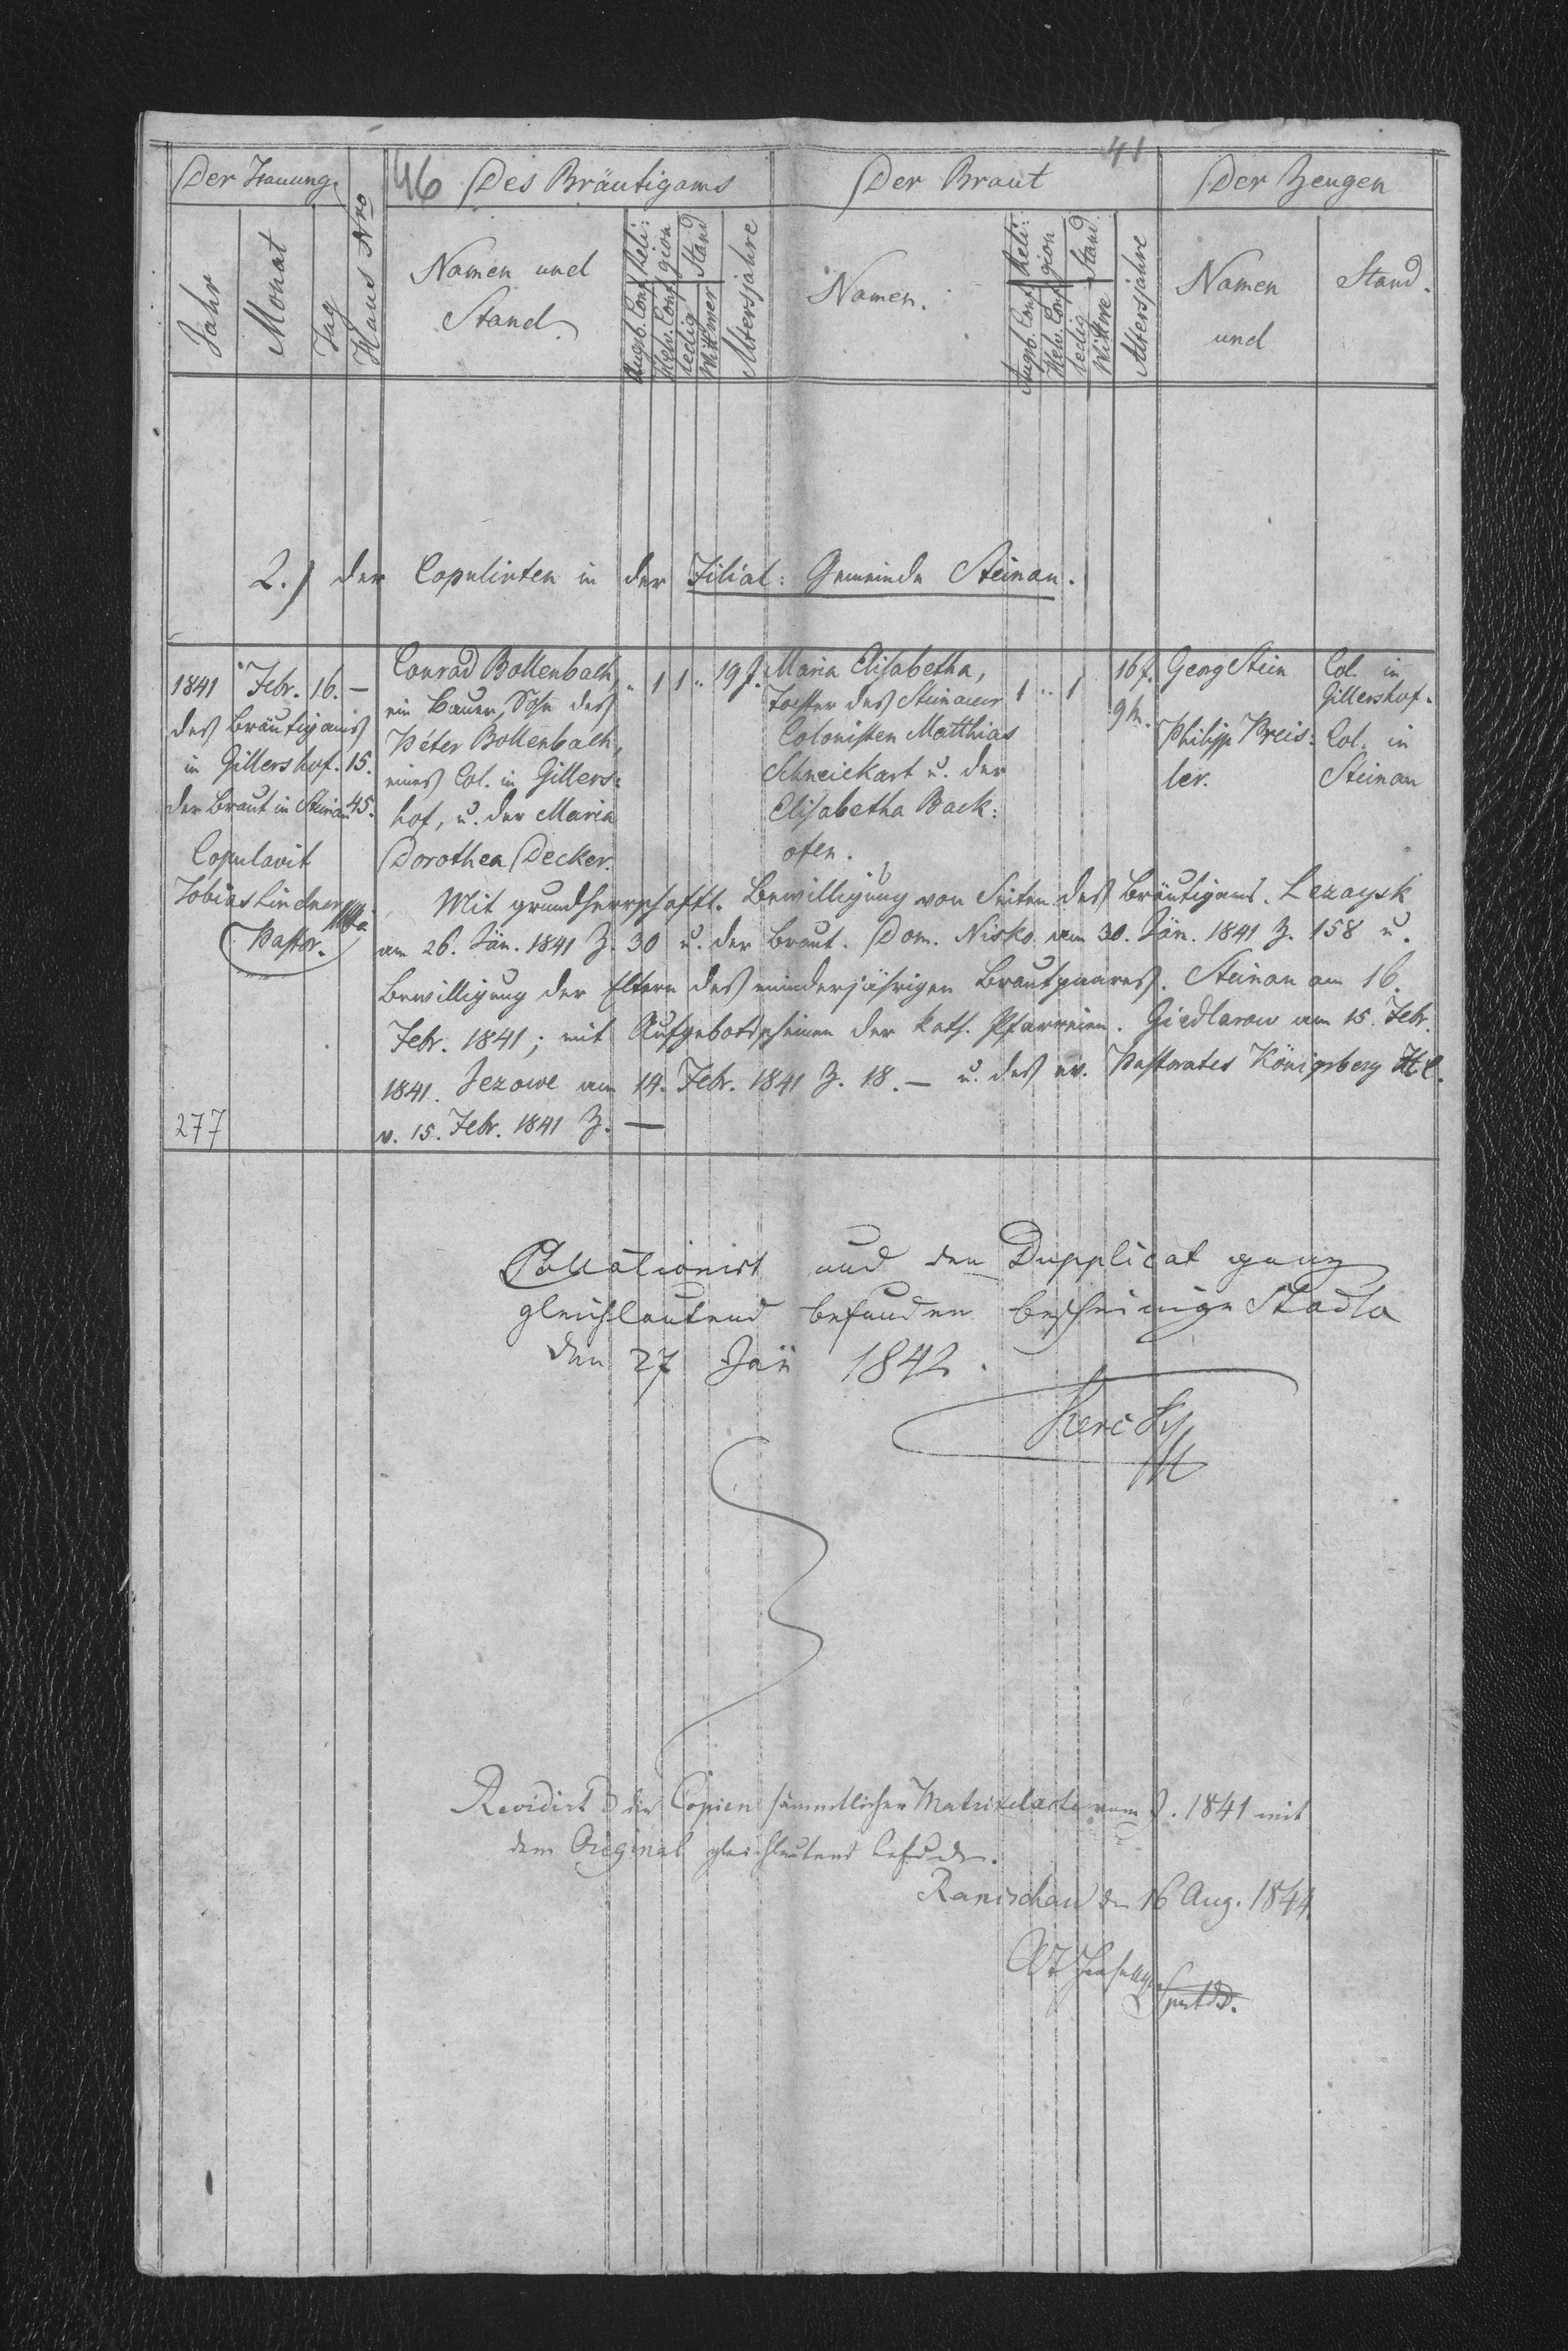 46
41
Der Trauung
Des Bräutigams
Der Braut
Der Zeugen
Jahr
Monat
Tag
Haus Nro
Namen und
Stand
Reli:
gion
Augsb. Conf.
Helv. Conf.
Stand
ledig
Wittwer
Altersjahre
Namen.
Reli:
gion
Augsb. Conf.
Helv. Conf.
Stand
ledig
Wittwe
Altersjahre
Namen
und
Stand.
2.) der Copulirten in der Filial: Gemeinde Steinau.
1841 Febr. 16. —
des Bräutigams
in Gillershof. 15.
der Braut in Steinau 45.
Copulavit
Tobias Lindner
Pastor.
Conrad Bollenbach,
ein Bauer, Sohn des
Peter Bollenbach,
eines Col. in Gillers:
hof, u. der Maria
Dorothea Decker.
" 1 1 " 19 J.
Maria Elisabetha,
Tochter des Steinauer
Colonisten Matthias
Schneickart u. der
Elisabetha Back:
ofen.
1 " 1
16 J.
9 M.
Georg Stein
Philipp Preis:
ler.
Col. in
Gillershof.
Col. in
Steinau
Mit grundherrschaftl. Bewilligung von Seiten des Bräutigams. Lezaysk
am 26. Jän. 1841 Z. 30 u. der Braut. Dom. Nisko am 30. Jän. 1841 Z. 158 u.
Bewilligung der Eltern des minderjährigen Brautpaares. Steinau am 16.
Febr. 1841; mit Aufgebotsscheinen der kath. Pfarreien. Giedlarow am 15. Febr.
1841. Jezowe am 14. Febr. 1841 Z. 18. — u. des ev. Pastorates Königsberg
v. 15. Febr. 1841 Z. —
277
Collationirt und den Dupplicat ganz
gleichlautend befunden bescheinige Stadla
den 27 Jän 1842.
Revidirt u. die Copien sämmtlicher Matrikelacte vom J. 1841 mit
dem Original gleichlautend befunden.
Ranischau den 16 Aug. 1844